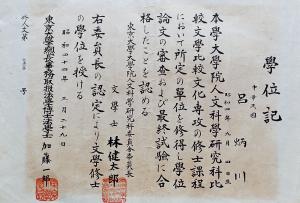 學位記
中華民國
呂炳川
昭和 年九月四日生
本學大学院人文科学研究科比
較文學比較文化專攻の修士課程
において所定の單位を修得し學位
論文の審査および最終試験に合
格したことを認める
東京大學大学院人文科学研究科委員会委員長
文學士 林健太郎
右委員長の認定により文學修
士の學位を授ける
昭和四十四年三月二十九日
東京大學總長事務取扱法學博士法學士 加藤一郎
外人文第 号